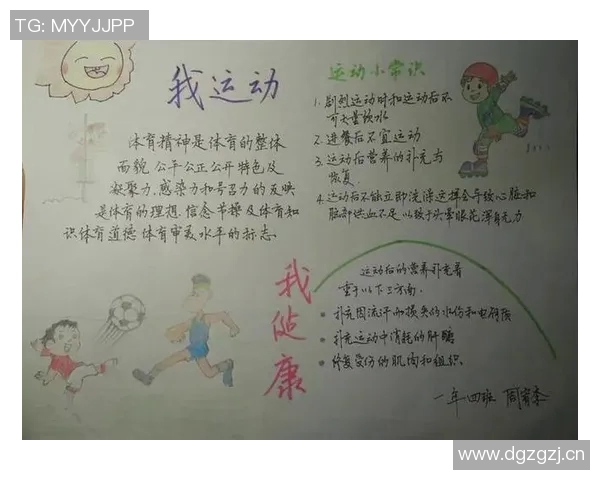 TG: MYYJJPP
我运动
体育精神是体育的整体
面貌.公平公正公开特色及
凝聚力.感染力和号召力的反映
是体育的理想.信念节操及体育知
识体育道德体育审美水平的标志.
运动小常识
1. 剧烈运动时和运动后不
可大量饮水
2. 进餐后不宜运动
3. 运动后营养的补充与
恢复.
4. 运动后不能立即洗澡这样会导致心脏和
脑部供血不足以致于头晕眼花浑身无力
我健康
运动后的营养补充着
重于以下三方面.
补充因流汗而损失的水份和电解质
补充运动中消耗的肝糖
修复受伤的肌肉和组织.
一年四班
www.dgzgzj.cn